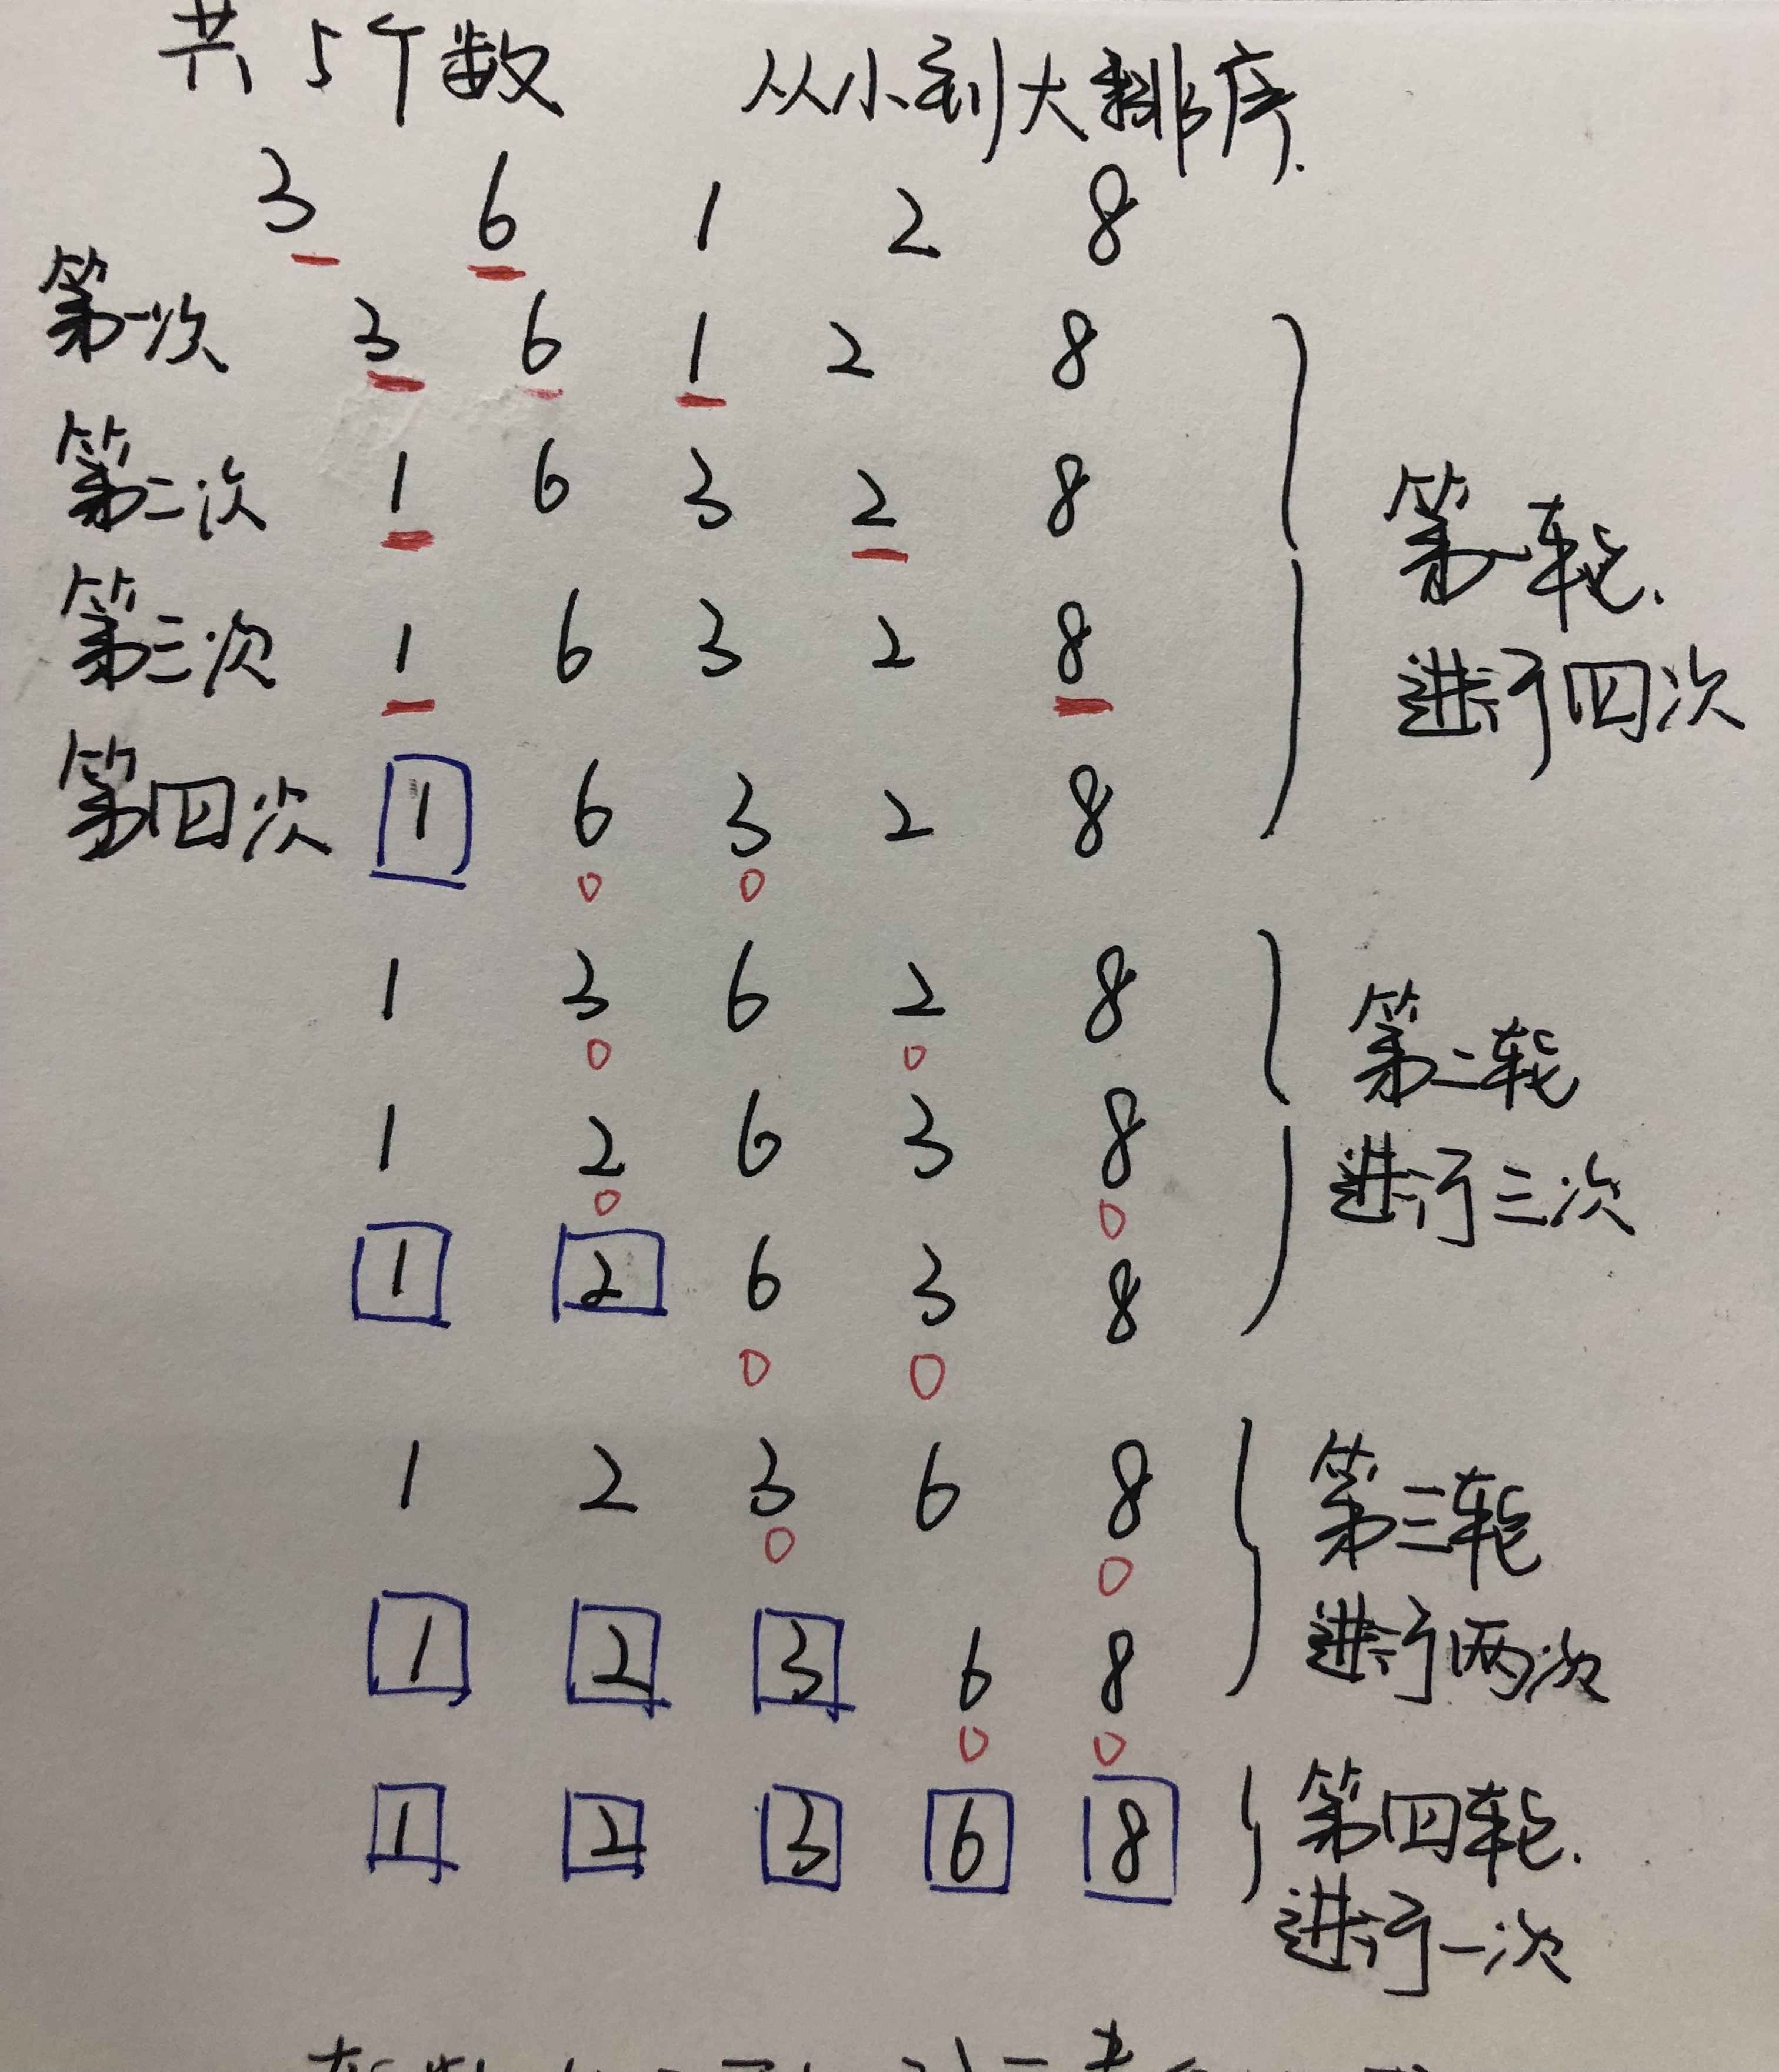 共5个数 从小到大排序.
3 6 1 2 8
第一次 3 6 1 2 8
第二次 1 6 3 2 8
第三次 1 6 3 2 8
第四次 1 6 3 2 8
第一轮.
进行四次
1 3 6 2 8
1 2 6 3 8
1 2 6 3 8
第二轮
进行三次
1 2 3 6 8
1 2 3 6 8
第三轮
进行两次
1 2 3 6 8
第四轮.
进行一次